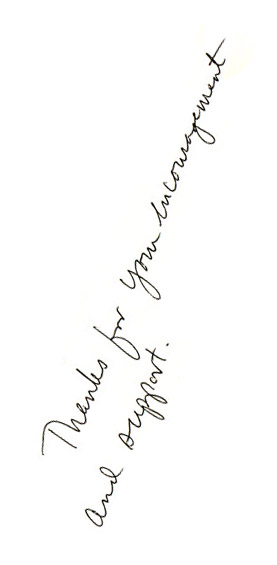 Thanks for your encouragement
and support.